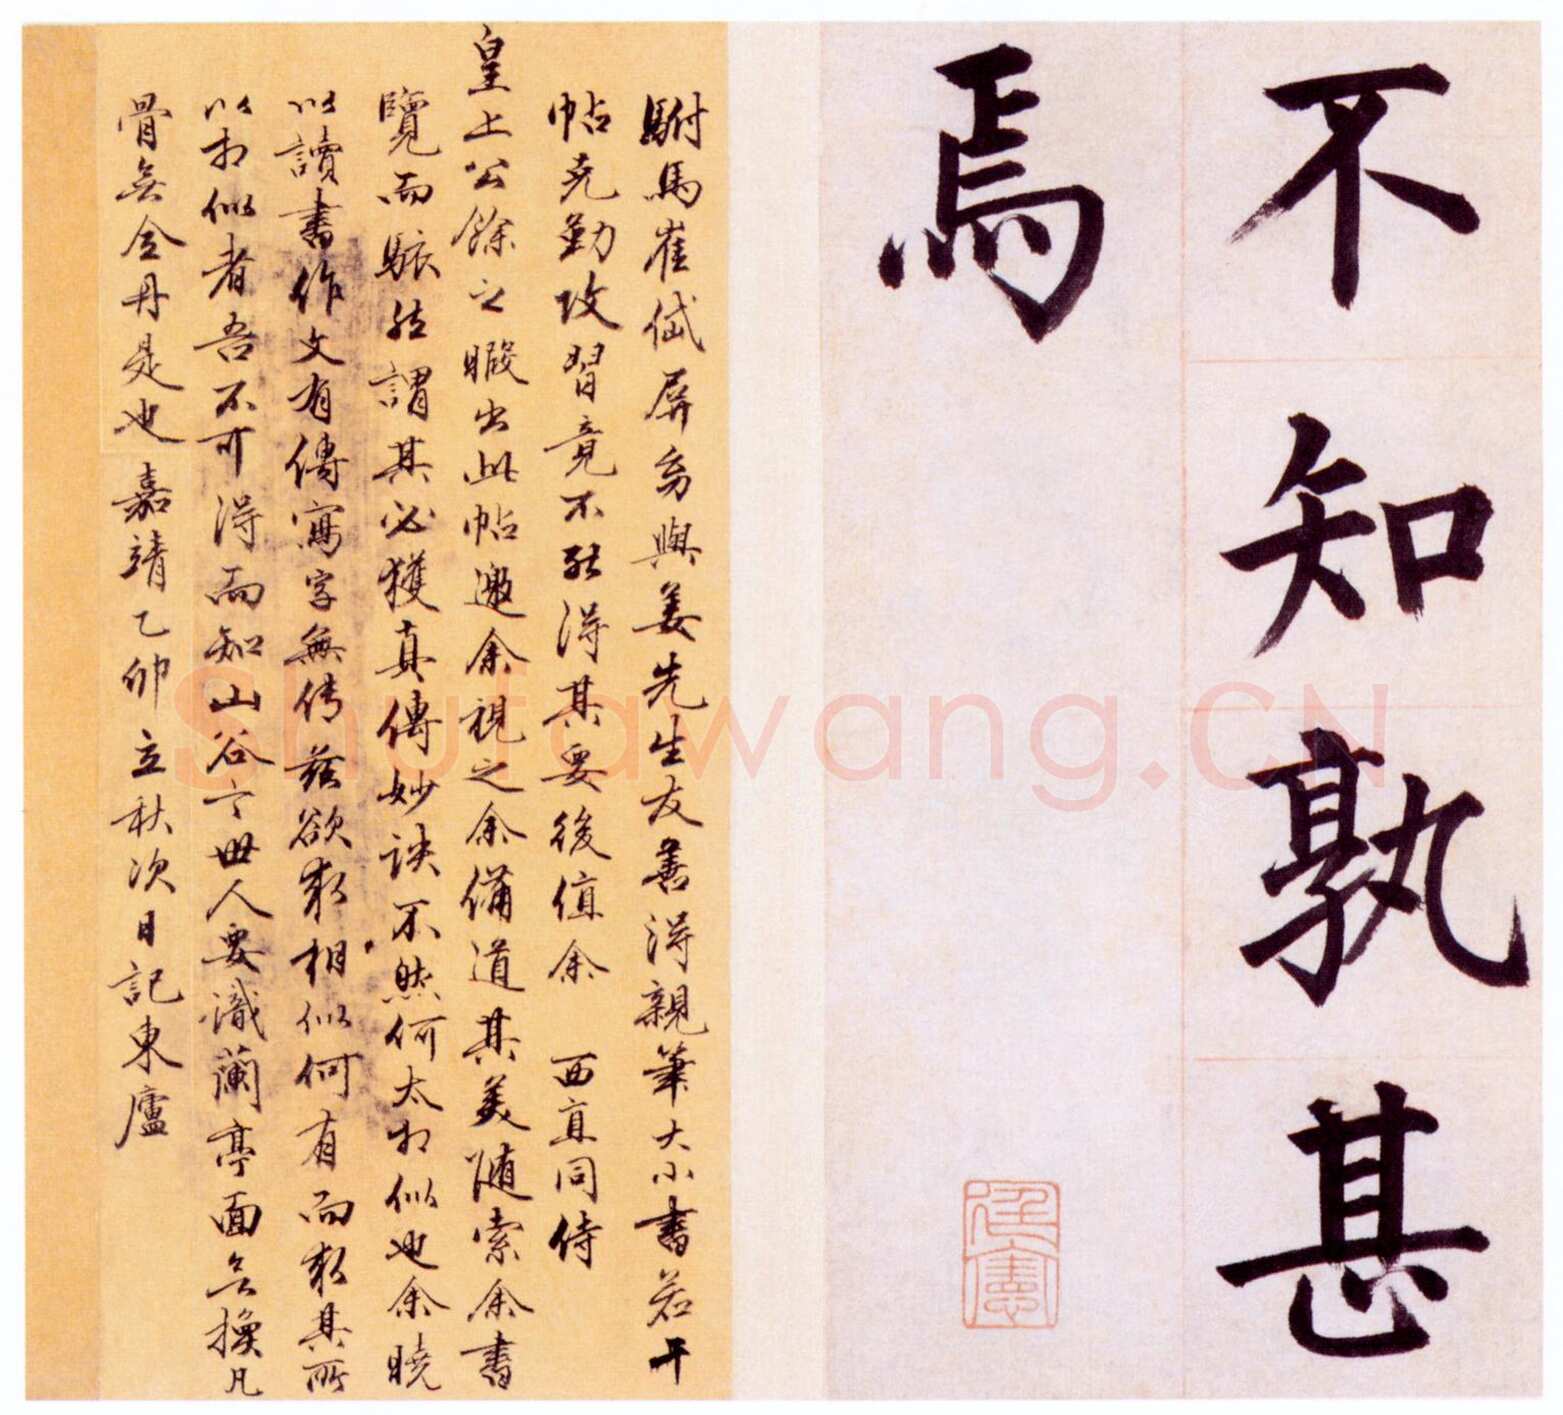 不知孰甚
焉
駙馬崔岱屏為與姜先生友善得親筆大小書若干
帖克勤攻習竟不能得其要後值余 西直同侍
皇上公餘之暇出此帖邀余視之余備道其美随索余書
覽而駭然謂其必獲真傳妙訣不然何太相似也余曉
以讀書作文有傳寫字無传茲欲求相似何有而求其所
以相似者吾不可得而知山谷云世人要識蘭亭面無換凡
骨無金丹是也嘉靖乙卯立秋次日記東廬
Shufawang.CN